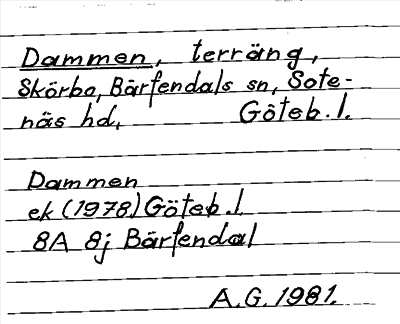 Dammen, terräng,
Skörbo, Bärfendals sn, Sote-
näs hd, Göteb. l.
Dammen
ek (1978) Göteb. l
8A 8j Bärfendal
A.G. 1981.